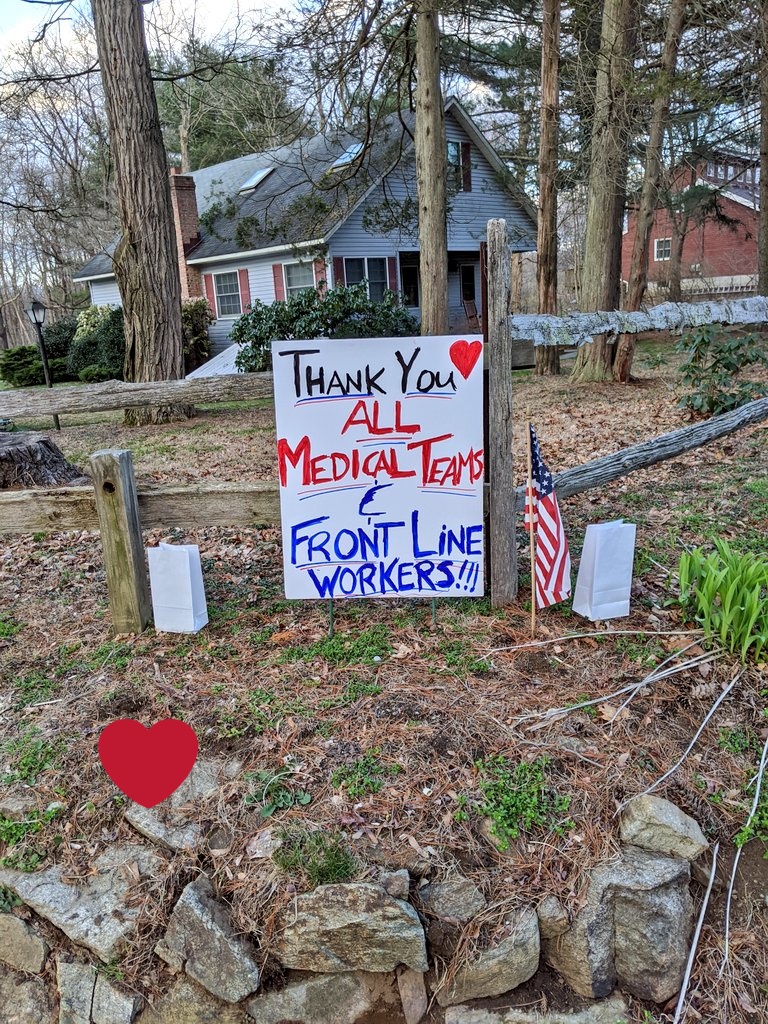 THANK YOU
ALL
MEDICAL TEAMS
&
FRONT LINE
WORKERS!!!